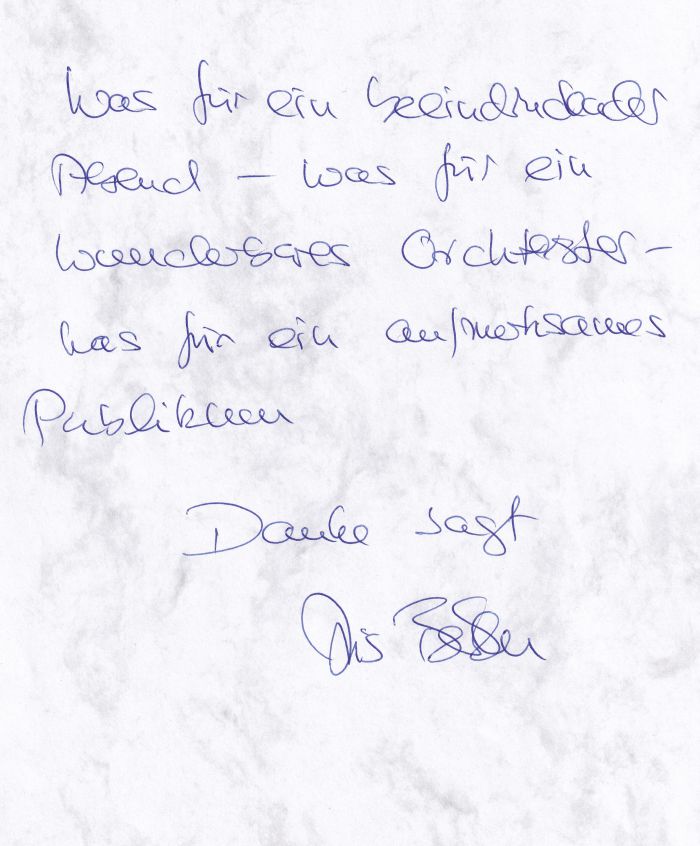 Was für ein beeindruckender
Abend – was für ein
wunderbares Orchester –
was für ein aufmerksames
Publikum
Danke sagt
Iris